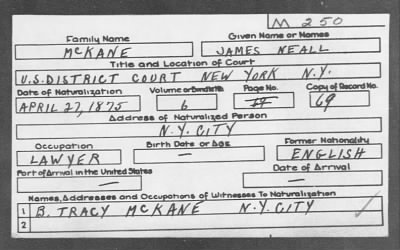 M 250
Family Name Given Name or Names
MCKANE JAMES NEALL
Title and Location of Court
U.S. DISTRICT COURT NEW YORK N.Y.
Date of Naturalization Volume or Bundle No. Page No. Copy of Record No.
APRIL 27, 1875 6 69
Address of Naturalized Person
N.Y. CITY
Occupation Birth Date or Age Former Nationality
LAWYER — ENGLISH
Port of Arrival in the United States Date of Arrival
— —
Names, Addresses and Occupations of Witnesses To Naturalization
1 B. TRACY MCKANE N.Y. CITY
2